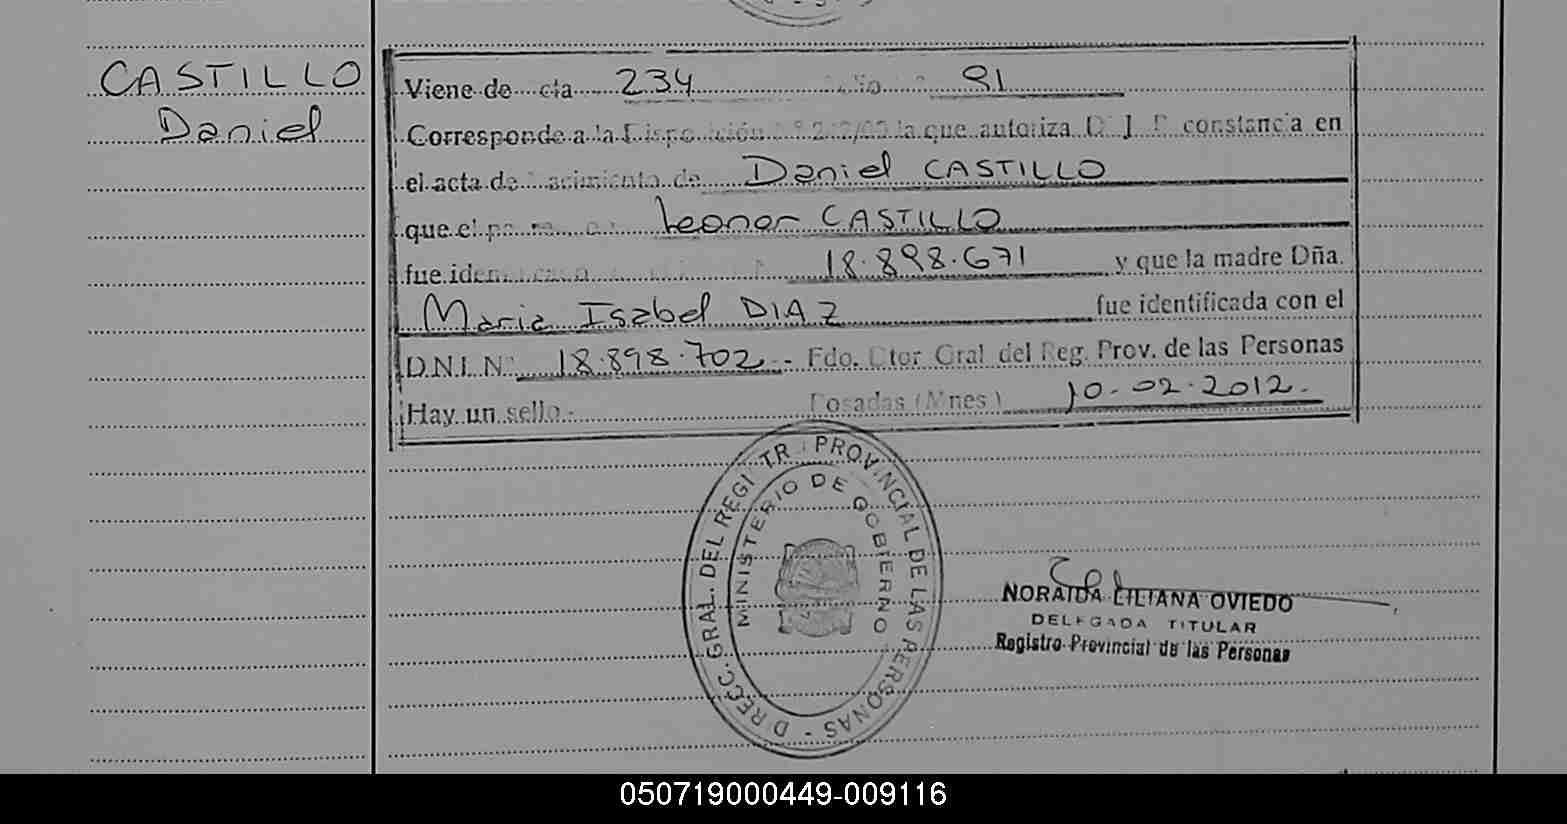 CASTILLO
Daniel
Viene de cta 234 81
Corresponde a la la que autoriza constancia en
el acta de Nacimiento de Daniel CASTILLO
que el Leonor CASTILLO
fue 18.898.671 y que la madre Dña.
Maria Isabel DIAZ fue identificada con el
D.N.I. N° 18.898.702 - Fdo. Dtor Gral del Reg. Prov. de las Personas
Hay un sello.- Posadas (Mnes) 10-02-2012.-
DIRECC. GRAL. DEL REGISTR PROVINCIAL DE LAS PERSONAS -
MINISTERIO DE GOBIERNO
NORAIDA LILIANA OVIEDO
DELEGADA TITULAR
Registro Provincial de las Personas
050719000449-009116